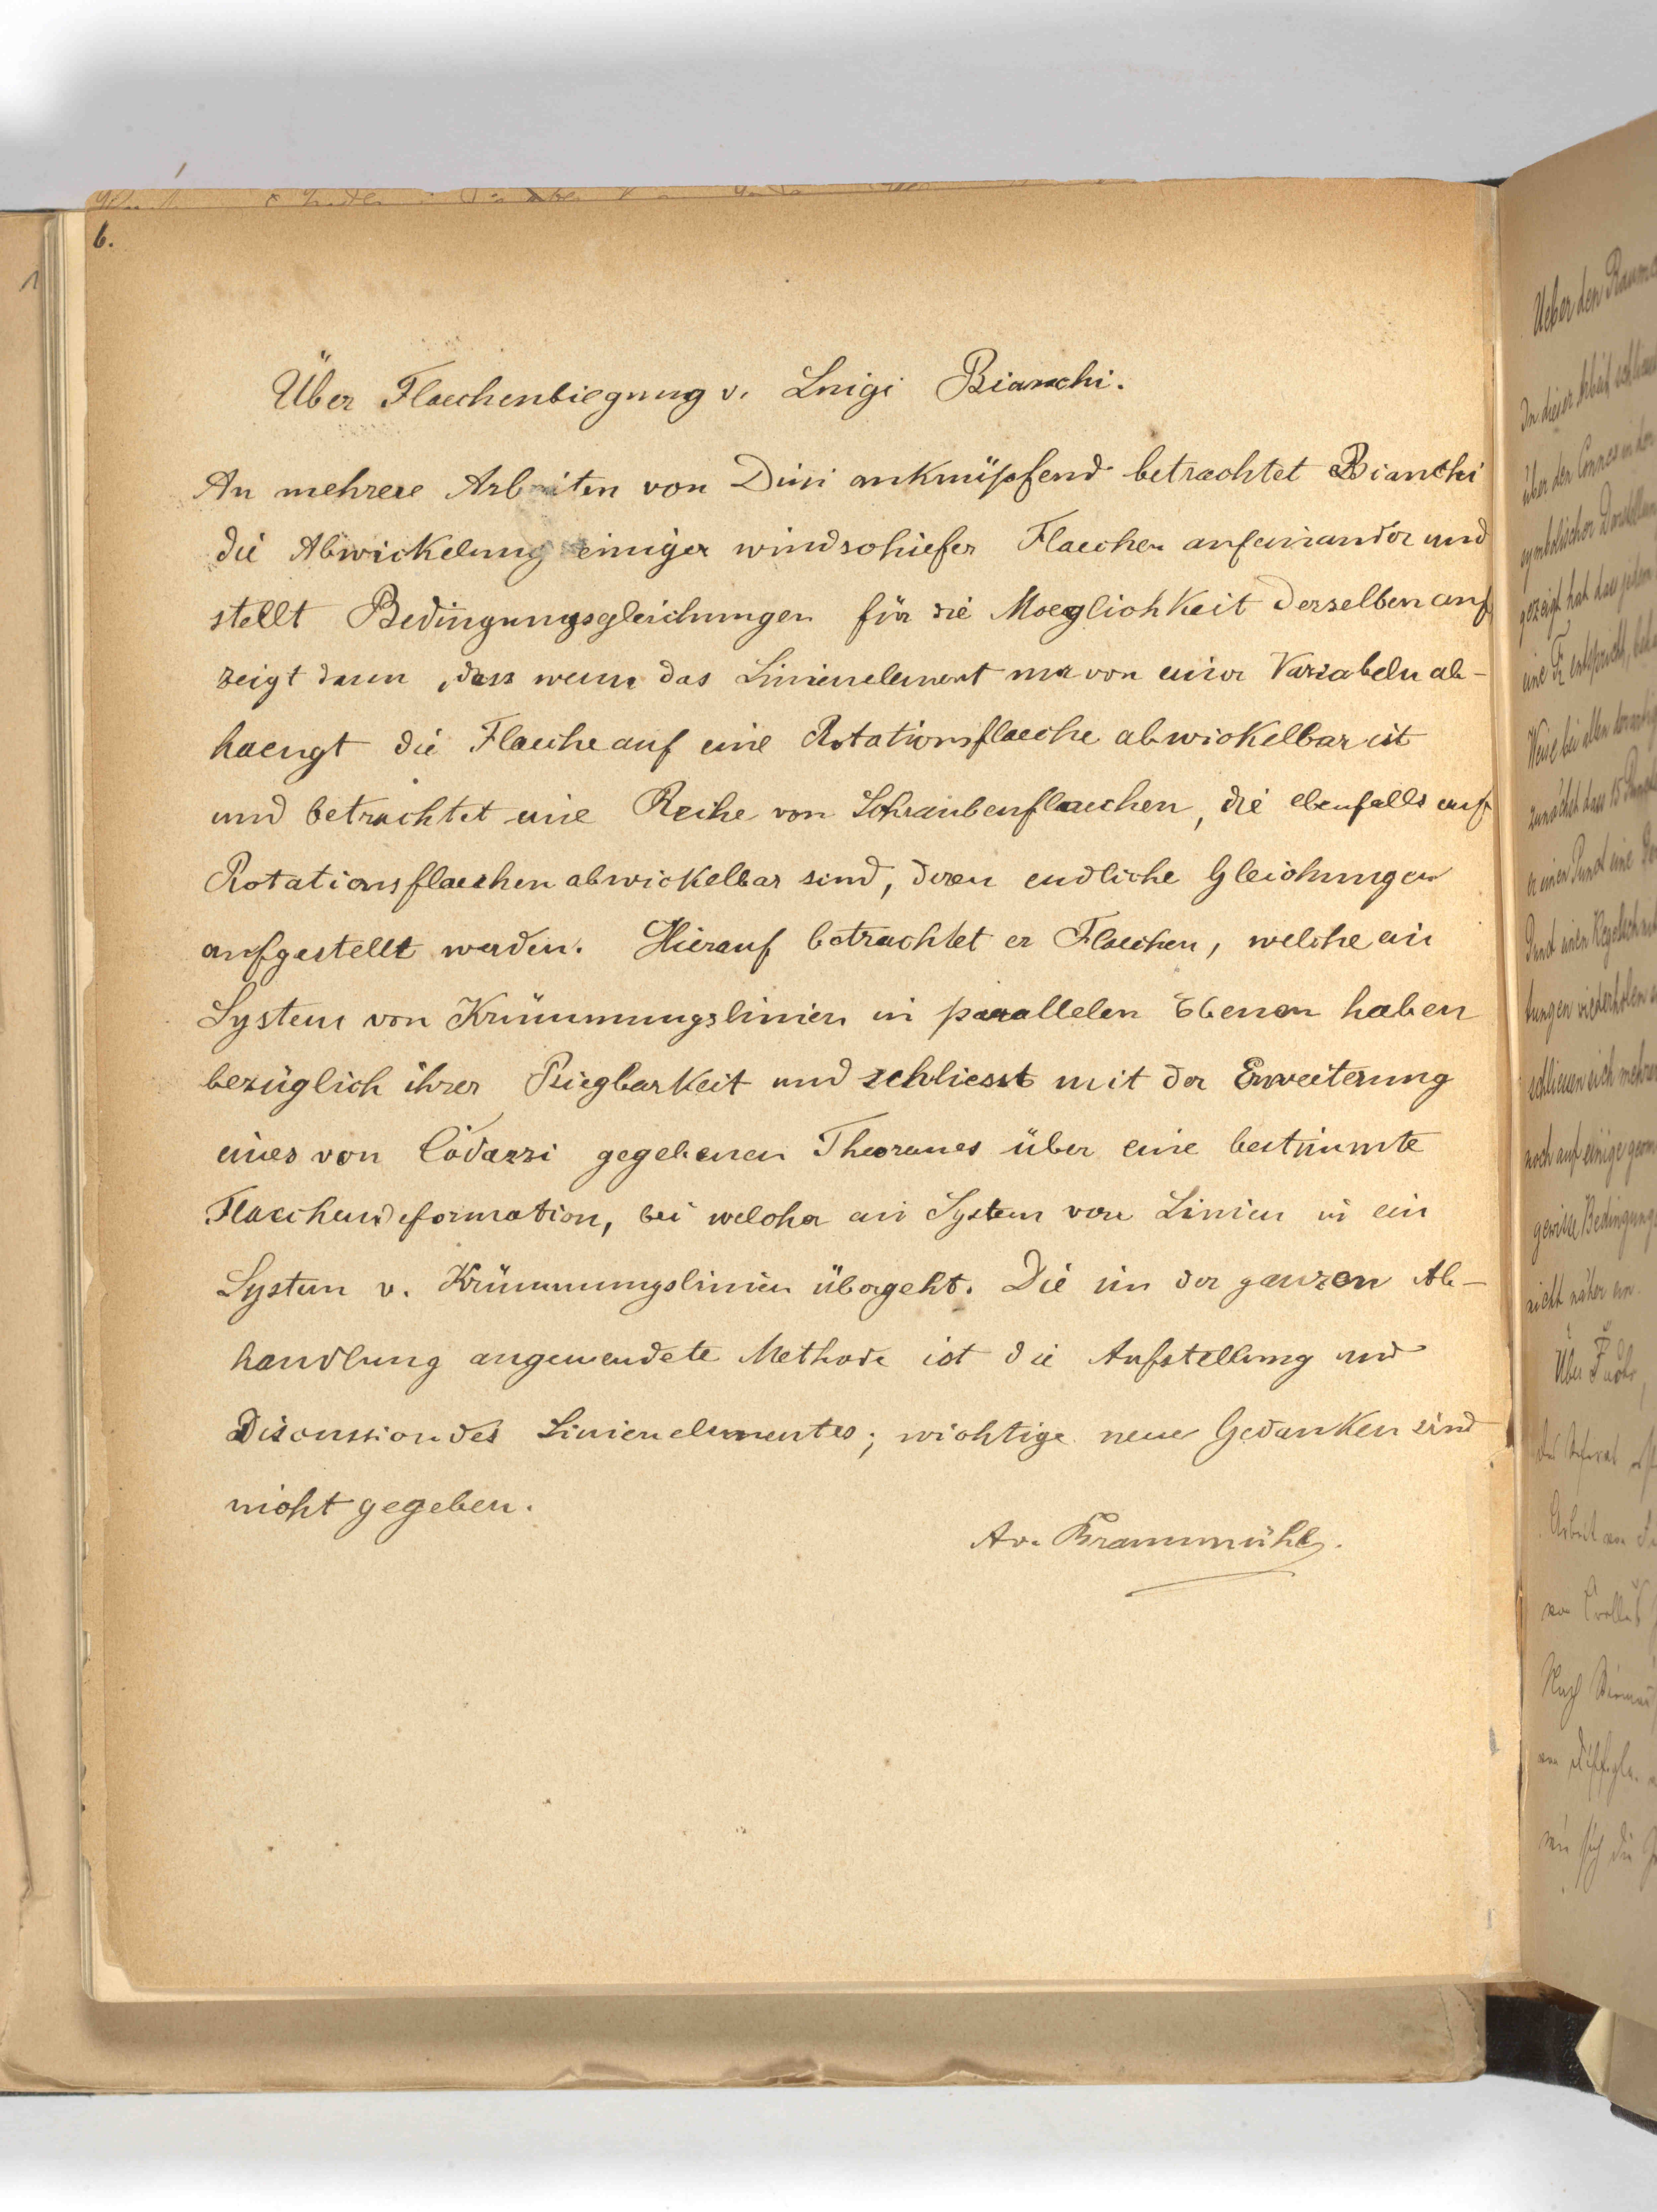 6.
Über Flaechenbiegung v. Luigi Bianchi.
An mehrere Arbeiten von Dini anknüpfend betrachtet Bianchi
die Abwickelung einiger windschiefer Flaechen aufeinander und
stellt Bedingungsgleichungen für die Moeglichkeit derselben auf
zeigt dann, dass wenn das Linienelement nur von einer Variabeln ab-
haengt die Flaeche auf eine Rotationsflaeche abwickelbar ist
und betrachtet eine Reihe von Schraubenflaechen, die ebenfalls auf
Rotationsflaechen abwickelbar sind, deren endliche Gleichungen
aufgestellt werden. Hierauf betrachtet er Flaechen, welche ein
System von Krümmungslinien in parallelen Ebenen haben
bezüglich ihrer Biegbarkeit und schliesst mit der Erweiterung
eines von Codazzi gegebenen Theoremes über eine bestimmte
Flaechendeformation, bei welcher ein System von Linien in ein
System v. Krümmungslinien übergeht. Die in der ganzen Ab-
handlung angewendete Methode ist die Aufstellung und
Discussion des Linienelementes; wichtige neue Gedanken sind
nicht gegeben.
A v. Braunmühl.
1
Ueber den
In dieser Arbeit
über den Connex in der
symbolischer
gezeigt hat dass jedem
eine entspricht,
Weise bei allen
zunächst dass 15
er einen Punct eine
Punct einen
tungen wiederholen
schliessen sich mehrere
noch auf einige geom
gewisse Bedingungs
nicht näher ein.
Über
Das Referat
Arbeit
von
Nach
wie sich die